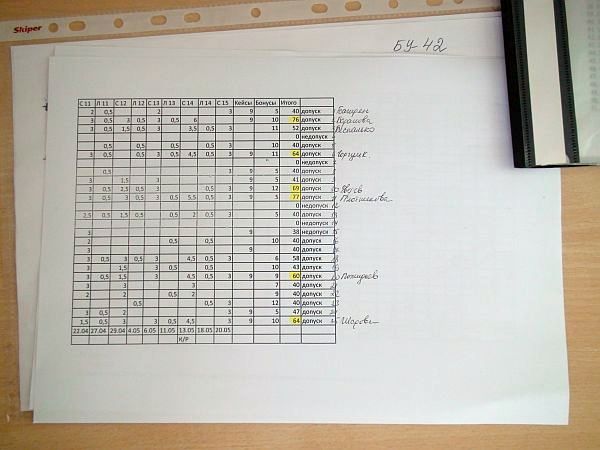 Skiper
БУ-42
С 11 Л 11 С 12 Л 12 С 13 Л 13 С 14 Л 14 С 15 Кейсы Бонусы Итого
2 0,5 2 3 9 5 40 допуск
3 0,5 3 0,5 3 0,5 6 9 10 76 допуск
3 0,5 1,5 0,5 3 3,5 0,5 3 11 52 допуск
0 недопуск
0,5 0,5 0,5 0,5 3 10 40 допуск
3 0,5 3 0,5 3 0,5 4,5 0,5 3 9 11 64 допуск
0 недопуск
0,5 3 9 5 40 допуск
3 1,5 3 9 5 41 допуск
3 0,5 2,5 0,5 3 0,5 3 9 12 69 допуск
3 0,5 3 0,5 3 0,5 5,5 0,5 3 9 5 77 допуск
0 недопуск 12
2,5 0,5 1,5 0,5 0,5 2 0,5 3 5 40 допуск 13
0 недопуск 14
3 9 38 недопуск 15
2 0,5 0,5 10 40 допуск 16
3 9 40 допуск
3 0,5 3 0,5 3 4,5 0,5 3 6 58 допуск 18
3 1,5 3 0,5 0,5 10 43 допуск
3 0,5 1,5 3 4,5 0,5 3 9 9 60 допуск
3 3 3 7 40 допуск
2 2 0,5 2 9 40 допуск 22
0,5 0,5 3 12 40 допуск 23
3 0,5 3 3 9 5 47 допуск
1,5 0,5 3 3 0,5 4,5 3 9 10 64 допуск
22.04 27.04 29.04 4.05 6.05 11.05 13.05 18.05 20.05
К/Р